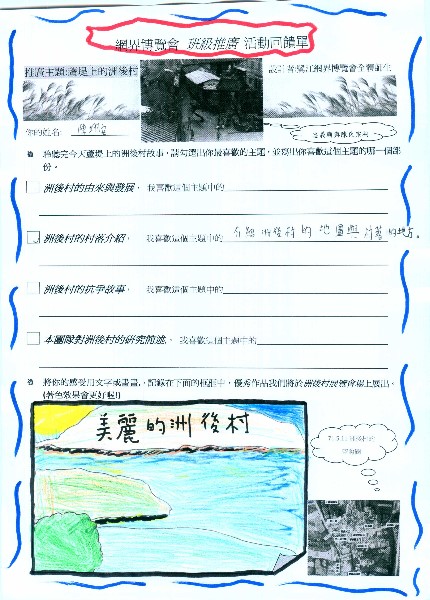 網界博覽會 班級推廣 活動回饋單
推廣主題:蘆堤上的洲後村
你的姓名:
聆聽完今天蘆堤上的洲後村故事，請勾選出你最喜歡的主題，並寫出你喜歡這個主題的哪一個部份。
洲後村的由來與發展， 我喜歡這個主題中的
洲後村的村落介紹， 我喜歡這個主題中的 介紹洲後村的地圖與 的地方。
洲後村的抗爭故事， 我喜歡這個主題中的
本團隊對洲後村的研究前述， 我喜歡這個主題中的
將你的感受用文字或畫畫，記錄在下面的框形中，優秀作品我們將於洲後村展覽會場上展出。
(著色效果會更好喔!)
美麗的洲後村